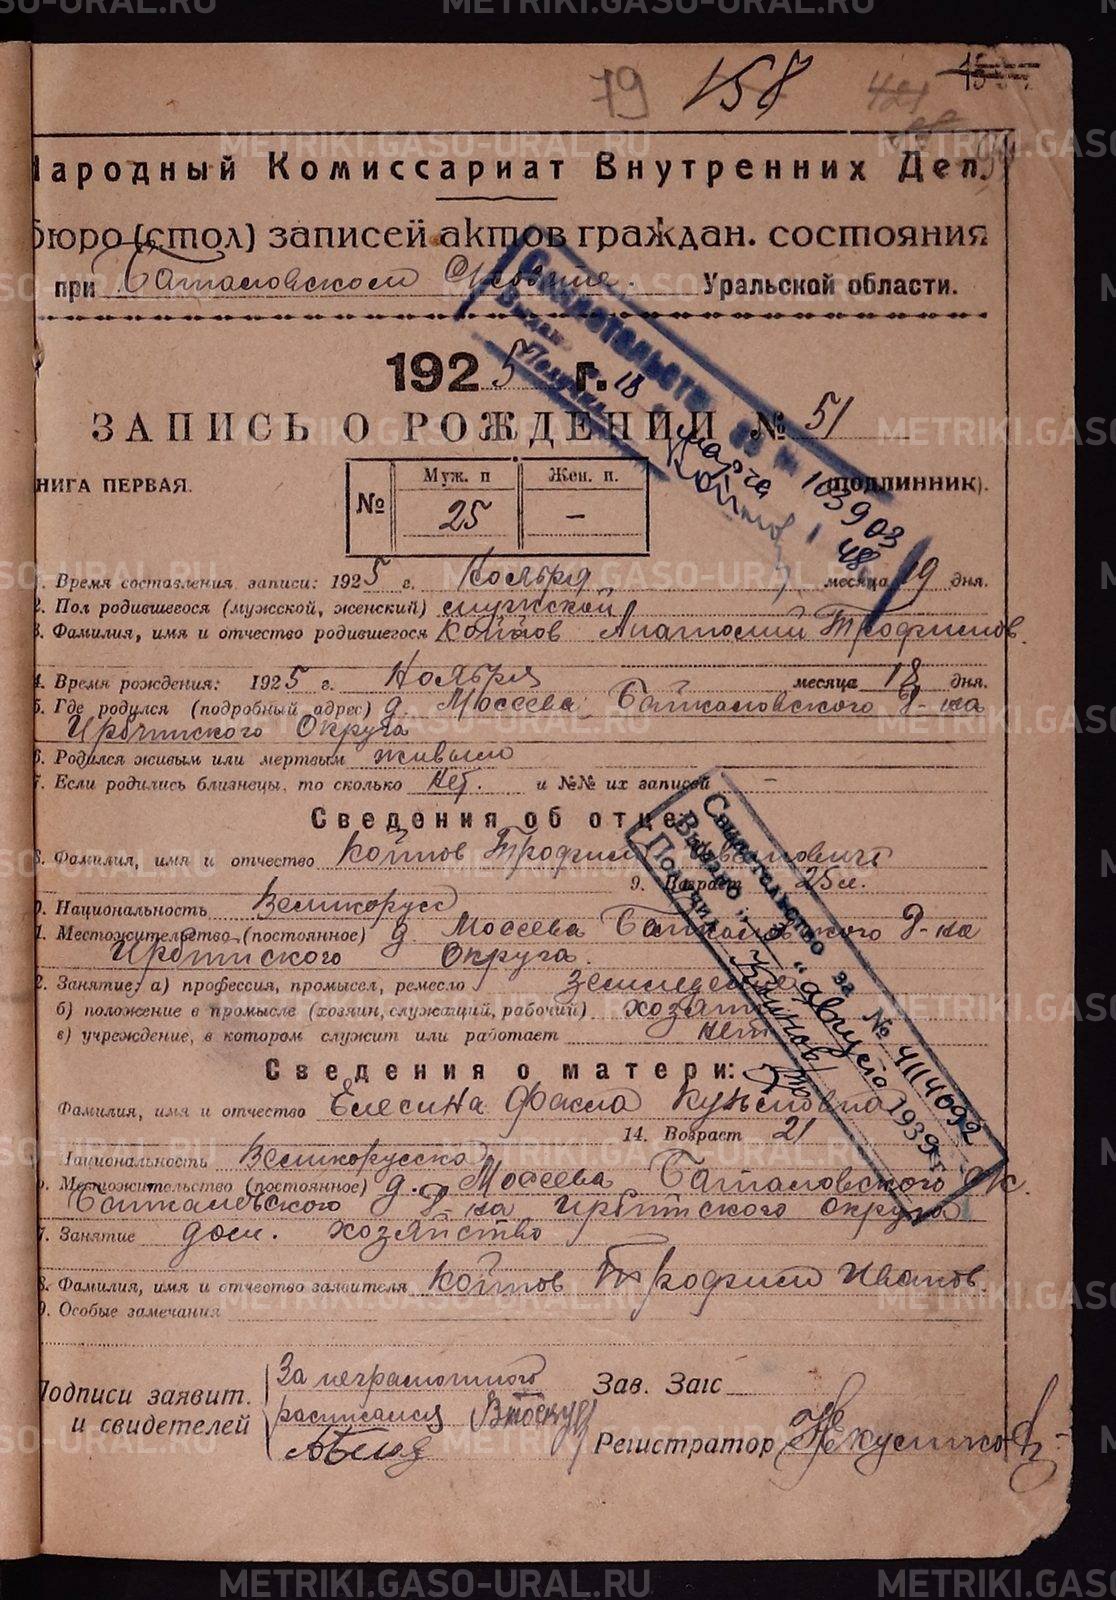 79 158
Народный Комиссариат Внутренних Дел.
бюро (стол) записей актов граждан. состояния
при Уральской области.
1925 г.
ЗАПИСЬ О РОЖДЕНИИ № 51
КНИГА ПЕРВАЯ. (ПОДЛИННИК).
№ Муж. п Жен. п.
25 —
Свидетельство
Выдан
18 марта 48
103903
1. Время составления записи: 1925 г. Ноября месяца 19 дня.
2. Пол родившегося (мужской, женский) мужской
3. Фамилия, имя и отчество родившегося Койнов Анатолий Трофимов.
4. Время рождения: 1925 г. Ноября месяца 18 дня.
5. Где родился (подробный адрес) д. Мосеева Байкаловского Р-на
Ирбитского Округа
6. Родился живым или мертвым живым
7. Если родились близнецы, то сколько нет. и №№ их записей —
Сведения об отце
8. Фамилия, имя и отчество Койнов Трофим Иванович
9. Возраст 25 л.
10. Национальность Великорусс
11. Местожительство (постоянное) д. Мосеева Байкаловского Р-на
Ирбитского Округа.
12. Занятие: а) профессия, промысел, ремесло земледелие
б) положение в промысле (хозяин, служащий, рабочий) хозяин
в) учреждение, в котором служит или работает нет
Свидетельство за № 4114092
Выдано „ “ августа 1939 г.
Получил
Сведения о матери:
Фамилия, имя и отчество Елесина Фекла
14. Возраст 21
Национальность Великорусска
Местожительство (постоянное) д. Мосеева
Байкаловского Р-на Ирбитского округа
17. Занятие дом. хозяйство
18. Фамилия, имя и отчество заявителя Койнов Трофим Иванов.
19. Особые замечания
Подписи заявит. и свидетелей За неграмотного
расписался
Зав. Загс
Регистратор
METRIKI.GASO-URAL.RU